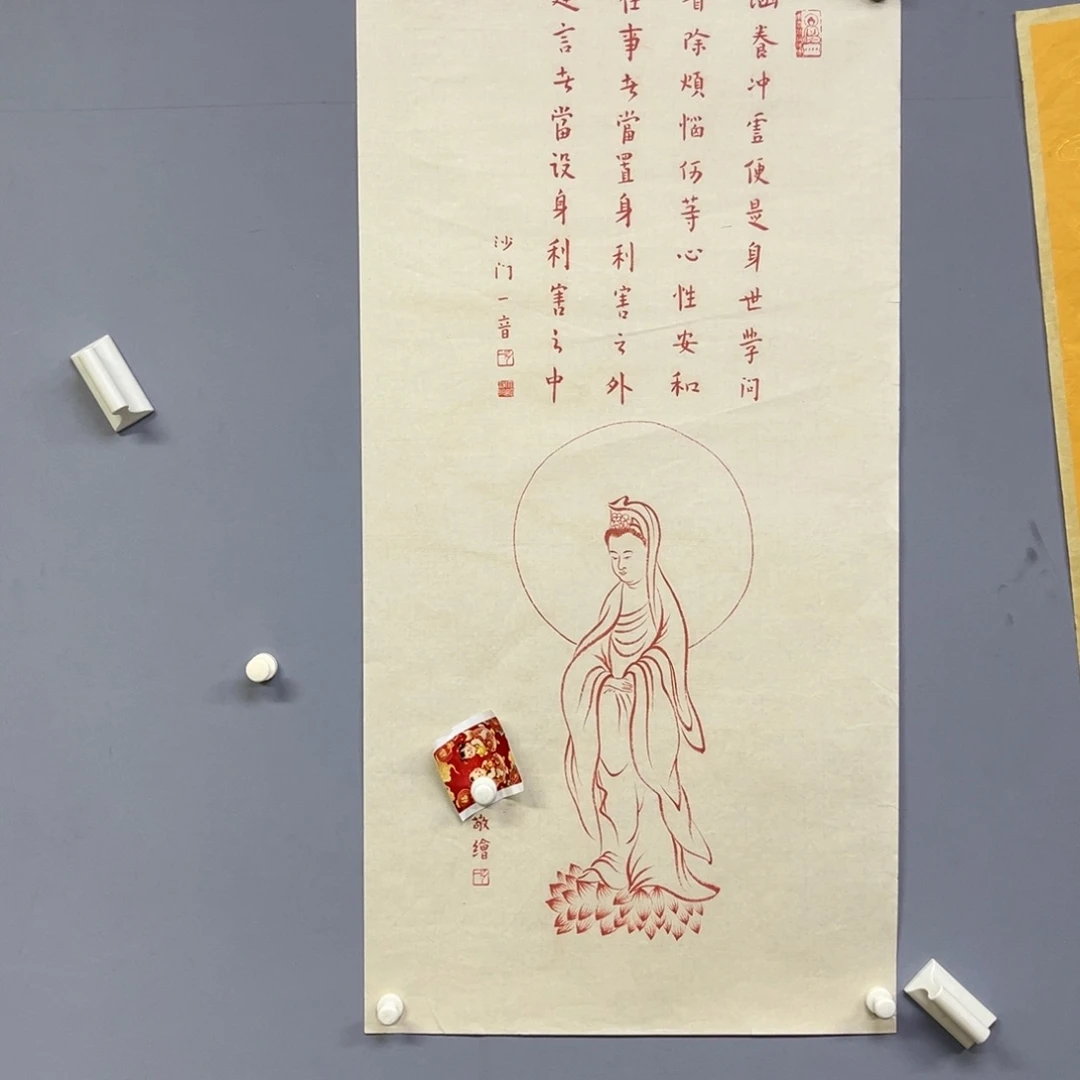 涵養冲虛便是身世學问
省除煩惱何等心性安和
任事者當置身利害之外
建言者當设身利害之中
沙门一音
敬繪